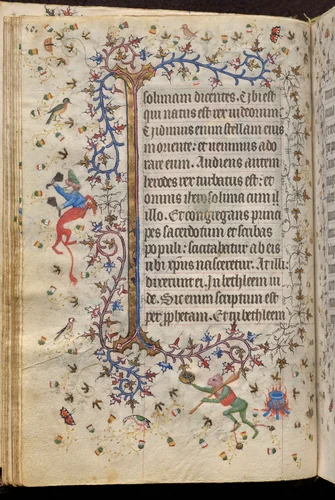 solimam dicentes. Ubi est
qui natus est rex iudeorum
Vidimus enim stellam eius
in oriente: et uenimus ado
rare eum. Audiens autem
herodes rex turbatus est: et
omnis iherosolima cum il
illo. Et congregans princi
pes sacerdotum et scribas
populi: sciscitabatur ab eis
ubi xp̄us nasceretur. At illi:
dixerunt ei. In bethleem iu
de. Sic enim scriptum est
per prophetam. Et tu bethleem